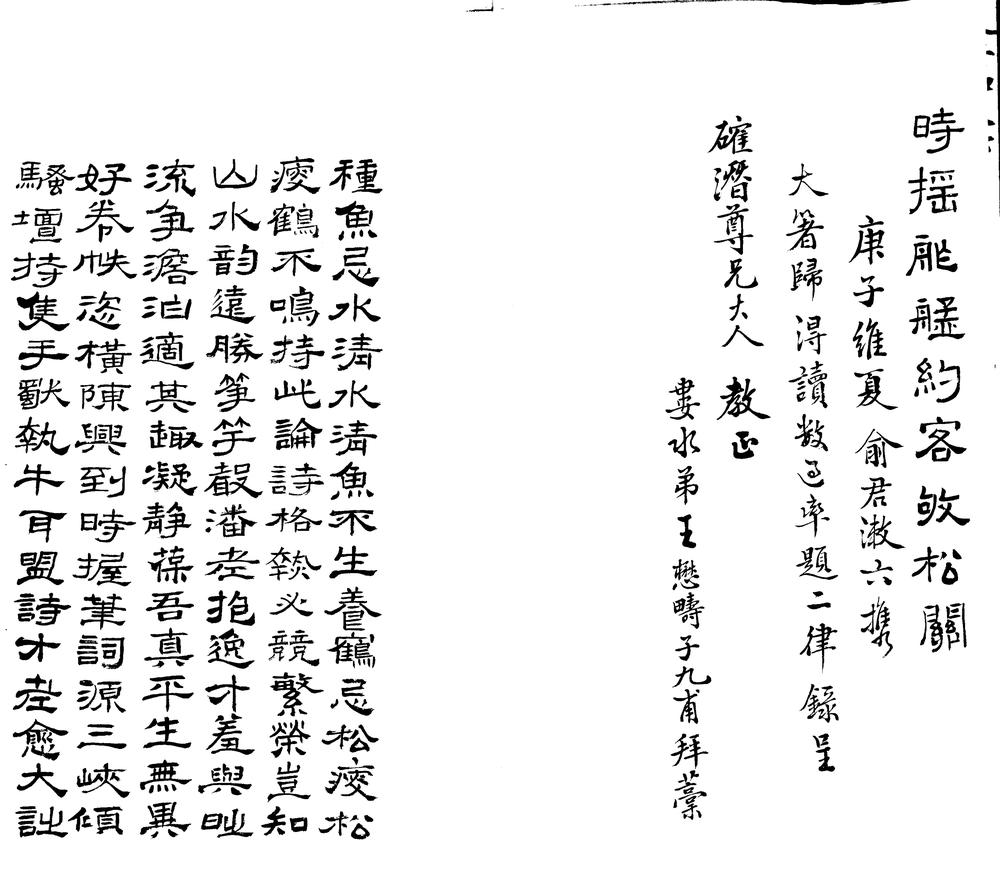 時摇舴艋約客敂松關
庚子維夏俞君漵六攜
大箸歸浔讀数過率題二律錄呈
確潛尊兄大人教正
婁水弟王懋疇子九甫拜藳
種魚忌水清水清魚不生養鶴忌松瘦松
瘦鶴不鳴持此論詩格欵必競繁榮豈知
山水韵遠勝箏竽殸潘老抱逸才羞與时
流争澹泊適其趣凝靜葆吾真平生無異
好卷帙恣橫陳興到時握筆詞源三峽傾
騷壇持隻手獸執牛耳盟詩才老愈大詘